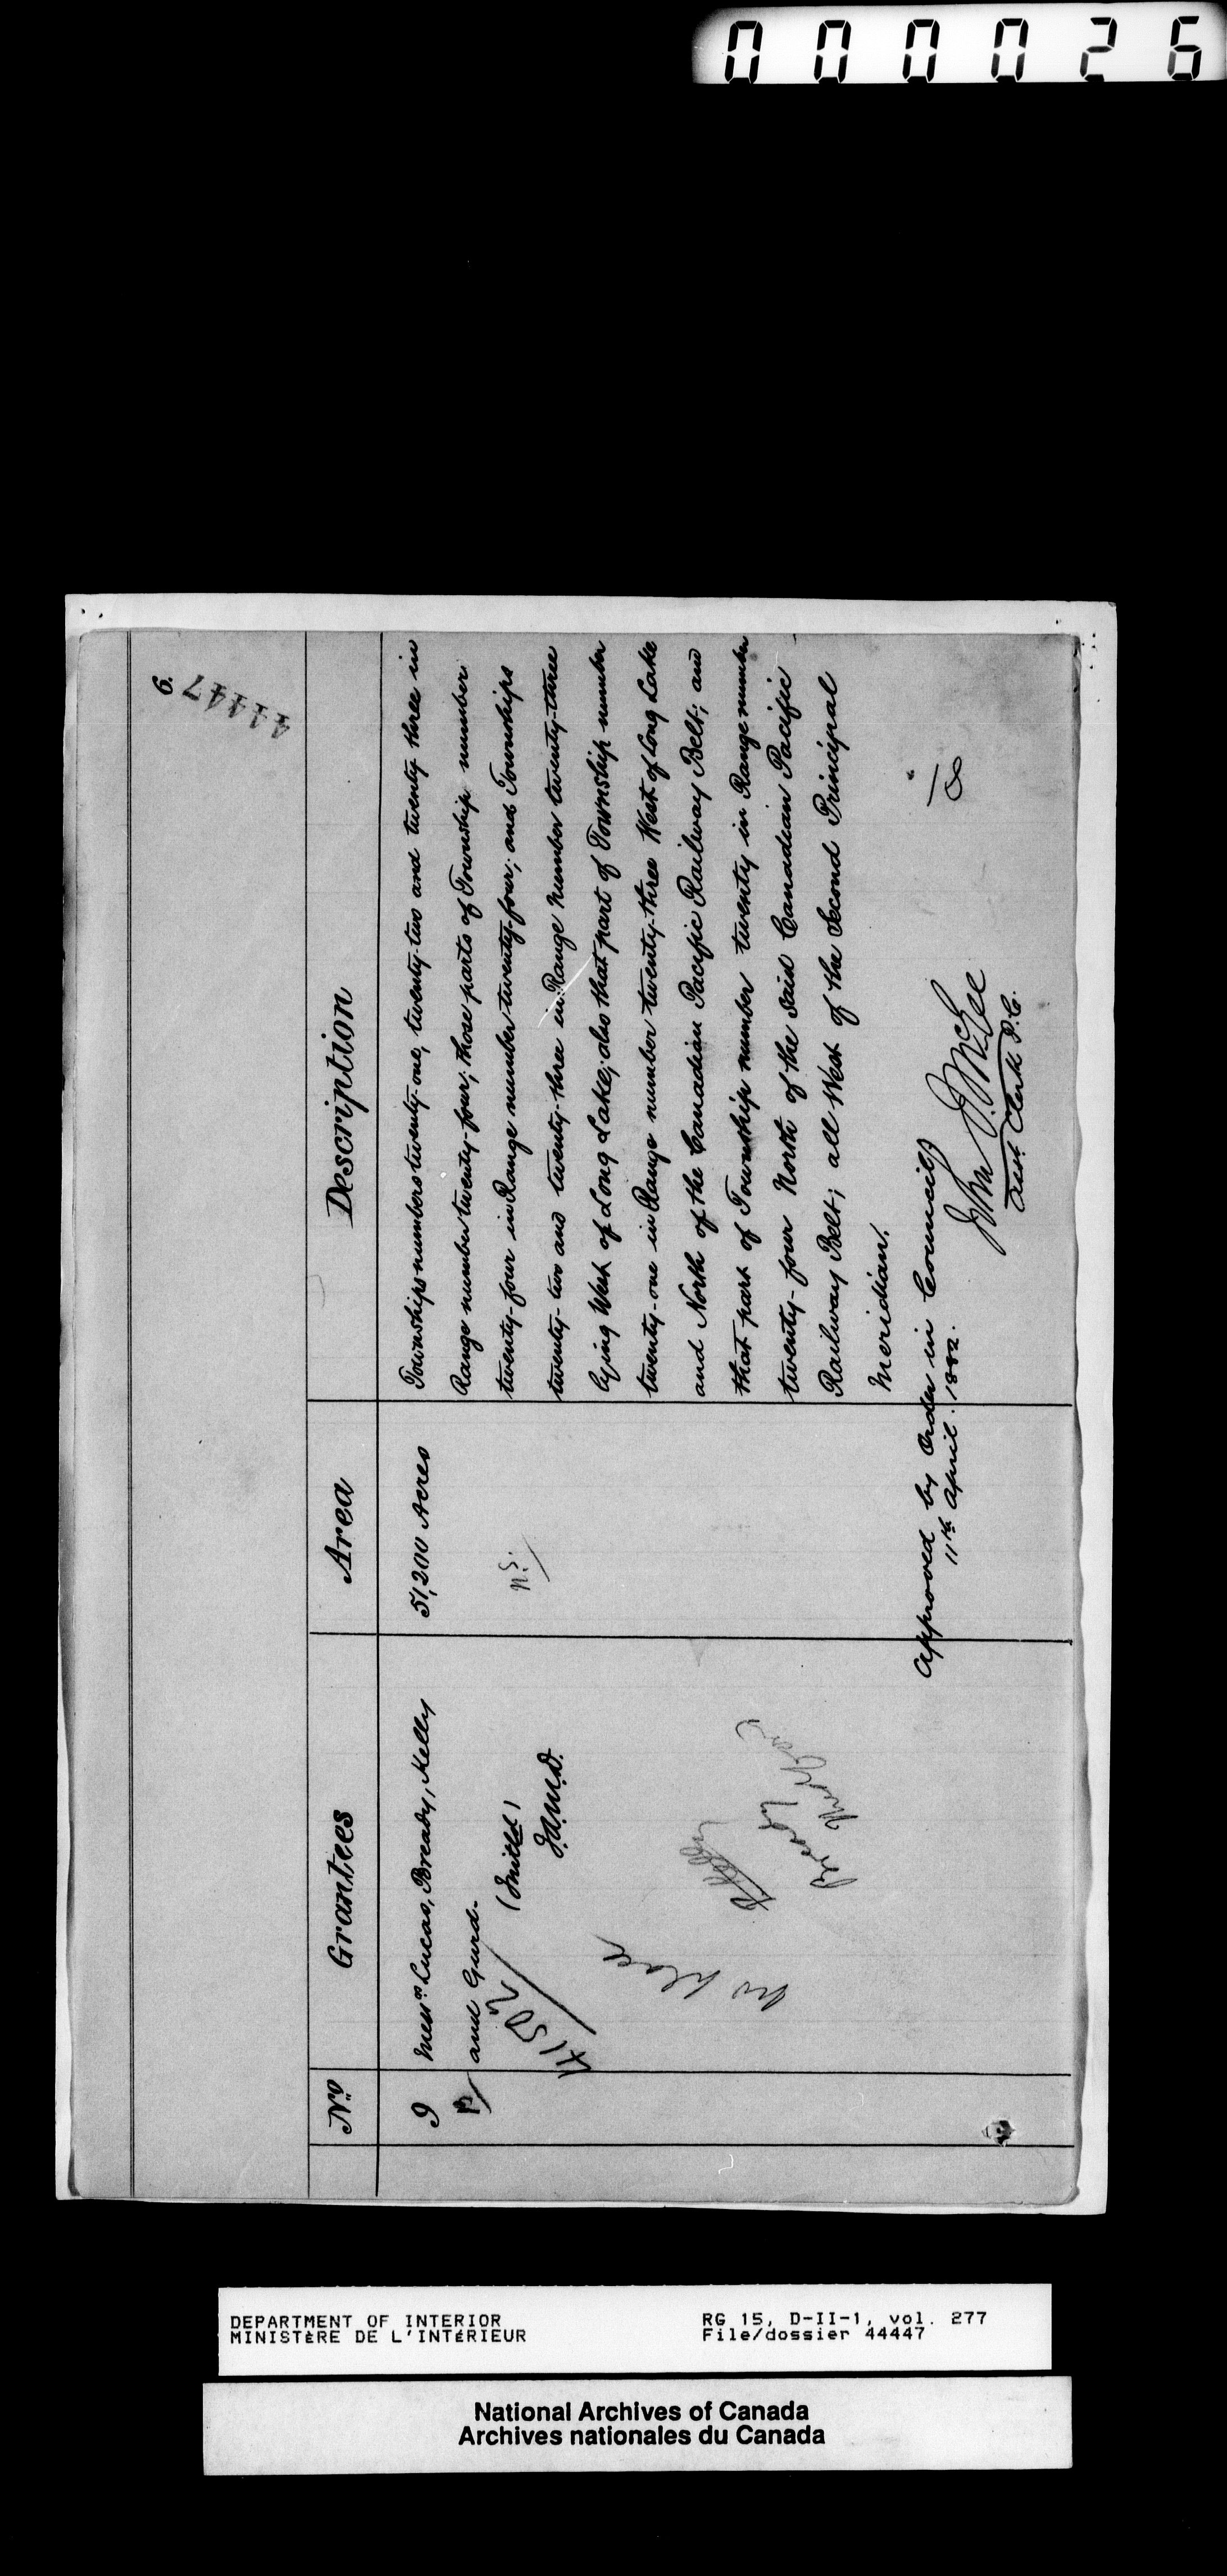 000026
6.
44447
No. Grantees Area Description
9
Messrs Lucas, Bready, Kelly
and Gurd.
51,200 Acres
Townships numbers twenty-one, twenty-two and twenty three in
Range number twenty-four; those parts of Township number
twenty-four in Range number twenty-four; and Townships
twenty-two and twenty-three in Range number twenty-three
lying West of Long Lake; also that part of Township number
twenty-one in Range number twenty-three West of Long Lake
and North of the Canadian Pacific Railway Belt; and
that part of Township number twenty in Range number
twenty-four North of the said Canadian Pacific
Railway Belt; all West of the Second Principal
Meridian.
Approved by Order in Council
11th April. 1882.
John J. McGee
Asst. Clerk P.C.
DEPARTMENT OF INTERIOR
MINISTÈRE DE L'INTÉRIEUR
RG 15, D-II-1, vol. 277
File/dossier 44447
National Archives of Canada
Archives nationales du Canada